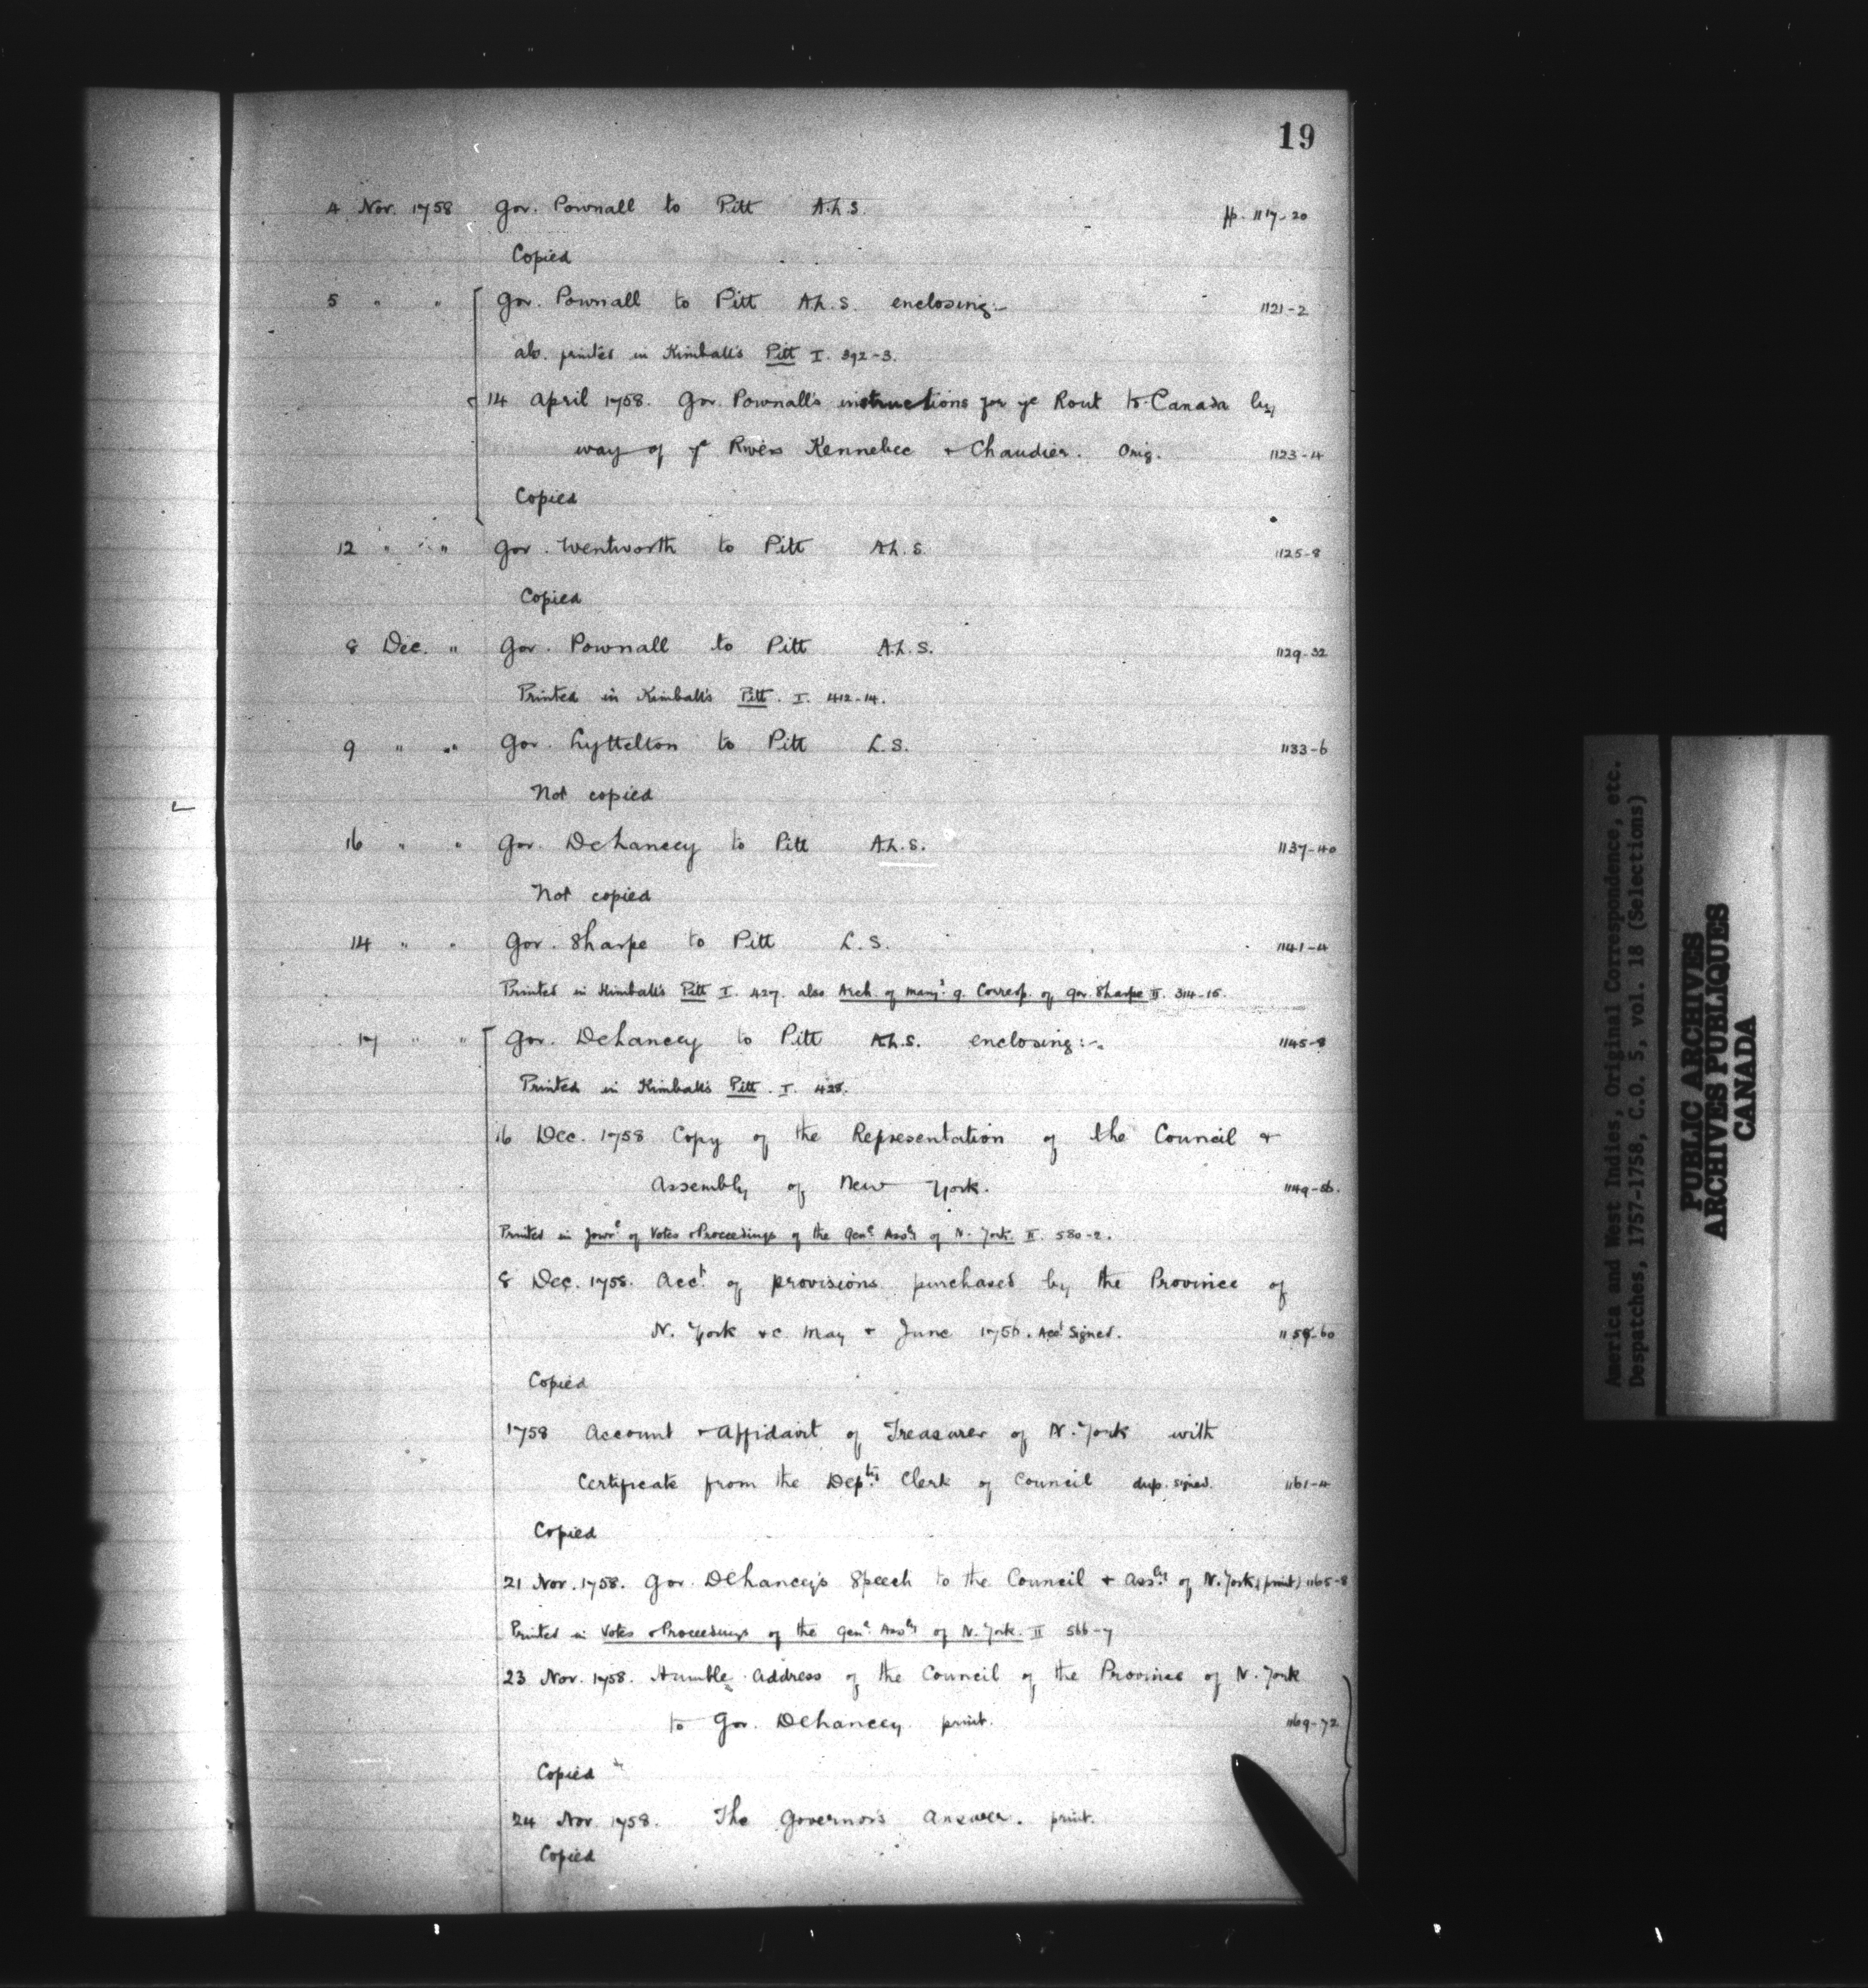 19
4 Nov. 1758 Gov. Pownall to Pitt A.L.S. pp. 1117-20
Copied
5 " " Gov. Pownall to Pitt A.L.S. enclosing:- 1121-2
printed in Kimball's Pitt I. 392-3.
14 April 1758. Gov. Pownall's instructions for ye Rout to Canada by
way of ye Rivers Kennebec + Chaudier. Orig. 1123-4
Copied
12 " " Gov. Wentworth to Pitt A.L.S. 1125-8
Copied
8 Dec. " Gov. Pownall to Pitt A.L.S. 1129-32
Printed in Kimball's Pitt. I. 412-14.
9 " " Gov. Lyttelton to Pitt L.S. 1133-6
Not copied
16 " " Gov. DeLancey to Pitt A.L.S. 1137-40
Not copied
14 " " Gov. Sharpe to Pitt L.S. 1141-4
Printed in Kimball's Pitt I. 427. also Arch. of Correp. of Gov. Sharpe II. 314-15.
17 " " Gov. DeLancey to Pitt A.L.S. enclosing:- 1145-8
Printed in Kimball's Pitt. I. 428.
16 Dec. 1758 Copy of the Representation of the Council +
Assembly of New York. 1149-56.
Printed in Jour.l of Votes + Proceedings of the Gen.l Ass.ly of N. York II. 580-2.
8 Dec. 1758. Acc.t of provisions purchased by the Province of
N. York &c. May + June 1756. Acc.t Signed.
Copied
1758 Account + Affidavit of Treasurer of N. York with
Certificate from the Dep.ty Clerk of Council dup. signed. 1161-4
Copied
21 Nov. 1758. Gov. DeLancey's Speech to the Council + Ass.ly of N. York (print) 1165-8
Printed in Votes + Proceedings of the Gen.l Ass.ly of N. York. II 566-7
23 Nov. 1758. Humble Address of the Council of the Province of N. York
to Gov. DeLancey. print. 1169-72
Copied
24 Nov. 1758. The Governor's Answer. print.
Copied
America and West Indies, Original Correspondence, etc.
Despatches, 1757-1758, C.O. 5, vol. 18 (Selections)
PUBLIC ARCHIVES
ARCHIVES PUBLIQUES
CANADA